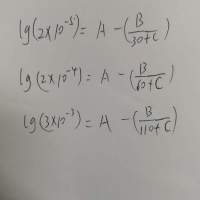 lg(2×10⁻⁵) = A - (B/30+C)
lg(2×10⁻⁴) = A - (B/60+C)
lg(3×10⁻³) = A - (B/110+C)